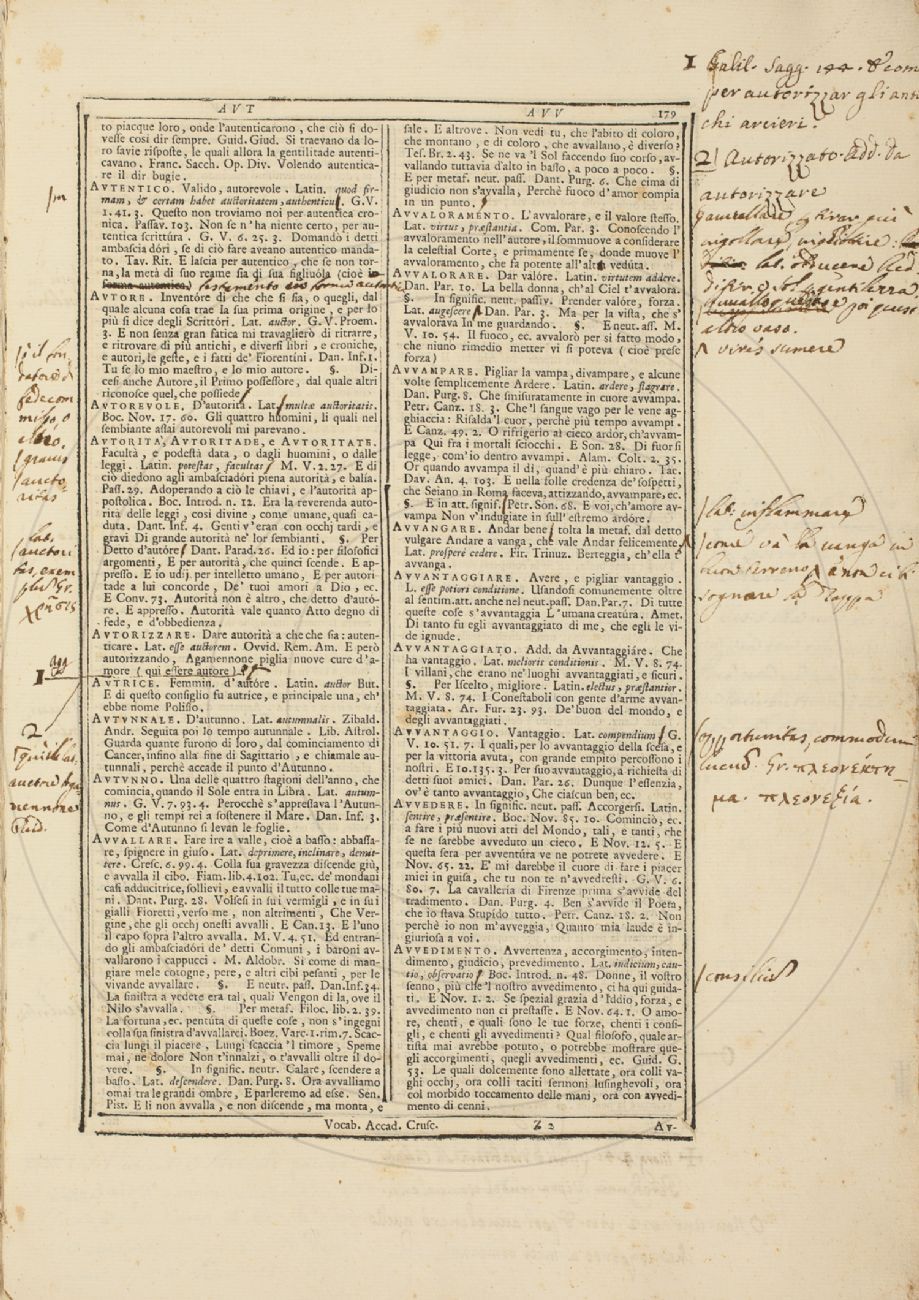 AVT
to piacque loro, onde l'autenticarono, che ciò si do-
vesse così dir sempre. Guid. Giud. Si traevano da lo-
ro savie risposte, le quali allora la gentilitade autenti-
cavano. Franc. Sacch. Op. Div. Volendo autentica-
re il dir bugie.
AVTENTICO. Valido, autorevole. Latin. quod fir-
mam, & certam habet auctoritatem, authenticus. G.V.
1. 41. 3. Questo non troviamo noi per autentica cro-
nica. Passav. 103. Non se n'ha niente certo, per au-
tentica scrittúra. G. V. 6. 25. 3. Domandò i detti
ambascia dóri, se di ciò fare aveano autentico manda-
to. Tav. Rit. E lascia per autentico, che se non tor-
na, la metà di suo reame sia di sua figliuola (cioè in
forma autentica) testamento in forma autentica
AVTORE. Inventóre di che che si sia, o quegli, dal
quale alcuna cosa trae la sua prima origine, e per lo
più si dice degli Scrittóri. Lat. auctor. G.V. Proem.
3. E non senza gran fatica mi travaglierò di ritrarre,
e ritrovare di più antichi, e diversi libri, e croniche,
e autori, le geste, e i fatti de' Fiorentini. Dan. Inf. 1.
Tu se lo mio maestro, e lo mio autore. §. Di-
cesi anche Autore, il Primo possessore, dal quale altri
riconosce quel, che possiede
AVTOREVOLE. D'autorità. Lat. multæ auctoritatis.
Boc. Nov. 17. 60. Gli quattro huomini, li quali nel
sembiante assai autorevoli mi parevano.
AVTORITÀ, AVTORITADE, e AVTORITATE.
Facultà, e podestà data, o dagli huomini, o dalle
leggi. Latin. potestas, facultas M. V. 2. 27. E di
ciò diedono agli ambasciadóri piena autorità, e balía.
Pass. 29. Adoperando a ciò le chiavi, e l'autorità ap-
postolica. Boc. Introd. n. 12. Era la reverenda auto-
rità delle leggi, così divine, come umane, quasi ca-
duta. Dant. Inf. 4. Genti v'eran con occhj tardi, e
gravi Di grande autorità ne' lor sembianti. §. Per
Detto d'autóre Dant. Parad. 26. Ed io: per filosofici
argomenti, E per autorità, che quinci scende. E ap-
presso. E io udij. per intelletto umano, E per autori-
tade a lui concorde, De' tuoi amori a Dio, ec.
E Conv. 73. Autorità non è altro, che detto d'autó-
re. E appresso. Autorità vale quanto Atto degno di
fede, e d'obbedienza.
AVTORIZZARE. Dare autorità a che che sia: auten-
ticare. Lat. esse auctorem. Ovvid. Rem. Am. E però
autorizzando, Agamennone piglia nuove cure d'a-
more (qui essere autore)
AVTRICE. Femmin. d'autóre. Latin. auctor But.
E di questo consiglio fu autrice, e principale una, ch'
ebbe nome Polisso.
AVTVNNALE. D'autunno. Lat. autumnalis. Zibald.
Andr. Seguita poi lo tempo autunnale. Lib. Astrol.
Guarda quante furono di loro, dal cominciamento di
Cancer, infino alla fine di Sagittario, e chiamale au-
tunnali, perchè accade il punto d'Autunno.
AVTVNNO. Una delle quattro stagioni dell'anno, che
comincia, quando il Sole entra in Libra. Lat. autum-
nus. G. V. 7. 93. 4. Perocchè s'appressava l'Autun-
no, e gli tempi rei a sostenere il Mare. Dan. Inf. 3.
Come d'Autunno si levan le foglie.
AVVALLARE. Fare ire a valle, cioè a basso: abbassa-
re, spignere in giuso. Lat. deprimere, inclinare, demit-
tere. Cresc. 6. 99. 4. Colla sua gravezza discende giù,
e avvalla il cibo. Fiam. lib. 4. 102. Tu, ec. de' mondani
casi adducitrice, sollievi, e avvalli il tutto colle tue ma-
ni. Dant. Purg. 28. Volsesi in sui vermigli, e in sui
gialli Fioretti, verso me, non altrimenti, Che Ver-
gine, che gli occhj onesti avvalli. E Can. 13. E l'uno
il capo sopra l'altro avvalla. M. V. 4. 51. Ed entran-
do gli ambasciadóri de' detti Comuni, i baroni av-
vallarono i cappucci. M. Aldobr. Si come di man-
giare mele cotogne, pere, e altri cibi pesanti, per le
vivande avvallare. §. E neutr. pass. Dan. Inf. 34.
La sinistra a vedere era tal, quali Vengon di la, ove il
Nilo s'avvalla. §. Per metaf. Filoc. lib. 2. 39.
La fortuna, ec. pentúta di queste cose, non s'ingegni
colla sua sinistra d'avvallarci. Boez. Varc. 1. rim. 7. Scac-
cia lungi il piacere, Lungi scaccia 'l timore, Speme
mai, ne dolore Non t'innalzi, o t'avvalli oltre il do-
vere. §. In signific. neutr. Calare, scendere a
basso. Lat. descendere. Dan. Purg. 8. Ora avvalliamo
omai tra le grandi ombre, E parleremo ad esse. Sen.
Pist. E li non avvalla, e non discende, ma monta, e
AVV
179
sale. E altrove. Non vedi tu, che l'abito di coloro,
che montano, e di coloro, che avvallano, è diverso?
Tes. Br. 2. 43. Se ne va 'l Sol faccendo suo corso, av-
vallando tuttavia d'alto in basso, a poco a poco. §.
E per metaf. neut. pass. Dant. Purg. 6. Che cima di
giudicio non s'avvalla, Perchè fuoco d'amor compia
in un punto.
AVVALORAMENTO. L'avvalorare, e il valore stesso.
Lat. virtus, præstantia. Com. Par. 3. Conoscendo l'
avvaloramento nell'autore, il sommuove a considerare
la celestial Corte, e primamente se, donde muove l'
avvaloramento, che fa potente all'alta veduta.
AVVALORARE. Dar valóre. Latin. virtutem addere.
Dan. Par. 10. La bella donna, ch'al Ciel t'avvalora.
§. In signific. neut. passiv. Prender valóre, forza.
Lat. augescere Dan. Par. 3. Ma per la vista, che s'
avvalorava In me guardando. §. E neut. ass. M.
V. 10. 54. Il fuoco, ec. avvalorò per sì fatto modo,
che niuno rimedio metter vi si poteva (cioè prese
forza)
AVVAMPARE. Pigliar la vampa, divampare, e alcune
volte semplicemente Ardere. Latin. ardere, flagrare.
Dan. Purg. 8. Che smisuratamente in cuore avvampa.
Petr. Canz. 18. 3. Che 'l sangue vago per le vene ag-
ghiaccia: Risalda 'l cuor, perchè più tempo avvampi.
E Canz. 49. 2. O rifrigerio al cieco ardor, ch'avvam-
pa Qui fra i mortali sciocchi. E Son. 28. Di fuor si
legge, com'io dentro avvampi. Alam. Colt. 2. 35.
Or quando avvampa il dì, quand'è più chiaro. Tac.
Dav. An. 4. 103. E nella folle credenza de' sospetti,
che Seiano in Roma faceva, attizzando, avvampare, ec.
§. E in att. signif. Petr. Son. 68. E voi, ch'amore av-
vampa Non v'indugiate in sull' estremo ardóre.
AVVANGARE. Andar bene tolta la metaf. dal detto
vulgare Andare a vanga, che vale Andar felicemente
Lat. prosperè cedere. Fir. Trinuz. Berteggia, ch'ella t'
avvanga.
AVVANTAGGIARE. Avere, e pigliar vantaggio.
L. esse potiori conditione. Usandosi comunemente oltre
al sentim. att. anche nel neut. pass. Dan. Par. 7. Di tutte
queste cose s'avvantaggia L'umana creatúra. Amet.
Di tanto fu egli avvantaggiato di me, che egli le vi-
de ignude.
AVVANTAGGIATO. Add. da Avvantaggiáre. Che
ha vantaggio. Lat. melioris conditionis. M. V. 8. 74.
I villani, che erano ne' luoghi avvantaggiati, e sicuri.
§. Per Iscelto, migliore. Latin. electus, præstantior.
M. V. 8. 74. I Conestaboli con gente d'arme avvan-
taggiata. Ar. Fur. 23. 93. De' buon del mondo, e
degli avvantaggiati.
AVVANTAGGIO. Vantaggio. Lat. compendium G.
V. 10. 51. 7. I quali, per lo avvantaggio della scesa, e
per la vittoria avuta, con grande empito percossono i
nostri. E 10. 135. 3. Per suo avvantaggio, a richiesta di
detti suoi amici. Dan. Par. 26. Dunque l'essenzia,
ov'è tanto avvantaggio, Che ciascun ben, ec.
AVVEDERE. In signific. neut. pass. Accorgersi. Latin.
sentire, præsentire. Boc. Nov. 85. 10. Cominciò, ec.
a fare i più nuovi atti del Mondo, tali, e tanti, che
se ne sarebbe avveduto un cieco. E Nov. 12. 5. E
questa sera per avventúra ve ne potrete avvedere. E
Nov. 65. 22. E' mi darebbe il cuore di fare i piacer
miei in guisa, che tu non te n'avvedresti. G. V. 6.
80. 7. La cavalleria di Firenze prima s'avvide del
tradimento. Dan. Purg. 4. Ben s'avvide il Poeta,
che io stava Stupido tutto. Petr. Canz. 18. 2. Non
perchè io non m'avveggia, Quanto mia laude è in-
giuriosa a voi.
AVVEDIMENTO. Avvertenza, accorgimento, inten-
dimento, giudicio, prevedimento. Lat. iudicium, cau-
tio, observatio Boc. Introd. n. 48. Donne, il vostro
senno, più che 'l nostro avvedimento, ci ha qui guida-
ti. E Nov. 1. 2. Se spezial grazia d'Iddio, forza, e
avvedimento non ci prestasse. E Nov. 64. 1. O amo-
re, chenti, e quali sono le tue forze, chenti i consi-
gli, e chenti gli avvedimenti? Qual filosofo, quale ar-
tista mai avrebbe potuto, o potrebbe mostrare que-
gli accorgimenti, quegli avvedimenti, ec. Guid. G.
53. Le quali dolcemente sono allettate, ora colli va-
ghi occhj, ora colli taciti sermoni lusinghevoli, ora
col morbido toccamento delle mani, ora con avvedi-
mento di cenni.
Vocab. Accad. Crusc.
Z 2
Av-
1 Galil. Sagg. 144. & com
per autorizzar gli anti
chi arcieri.
2 Autorizzato. Add. da
autorizzare
altro vaso.
viris sumere
lat. inflammare
come va la vanga in
buon terreno
sognare la zappa
opportunitas, commodum
Gr. πλεονεκτη-
μα. πλεονεξία.
consilium
fm
il fon
datore di
fedecom
misso, o
gravis
aucto-
ritas
lat.
auctori
tas, exem
plum Gr.
1
2